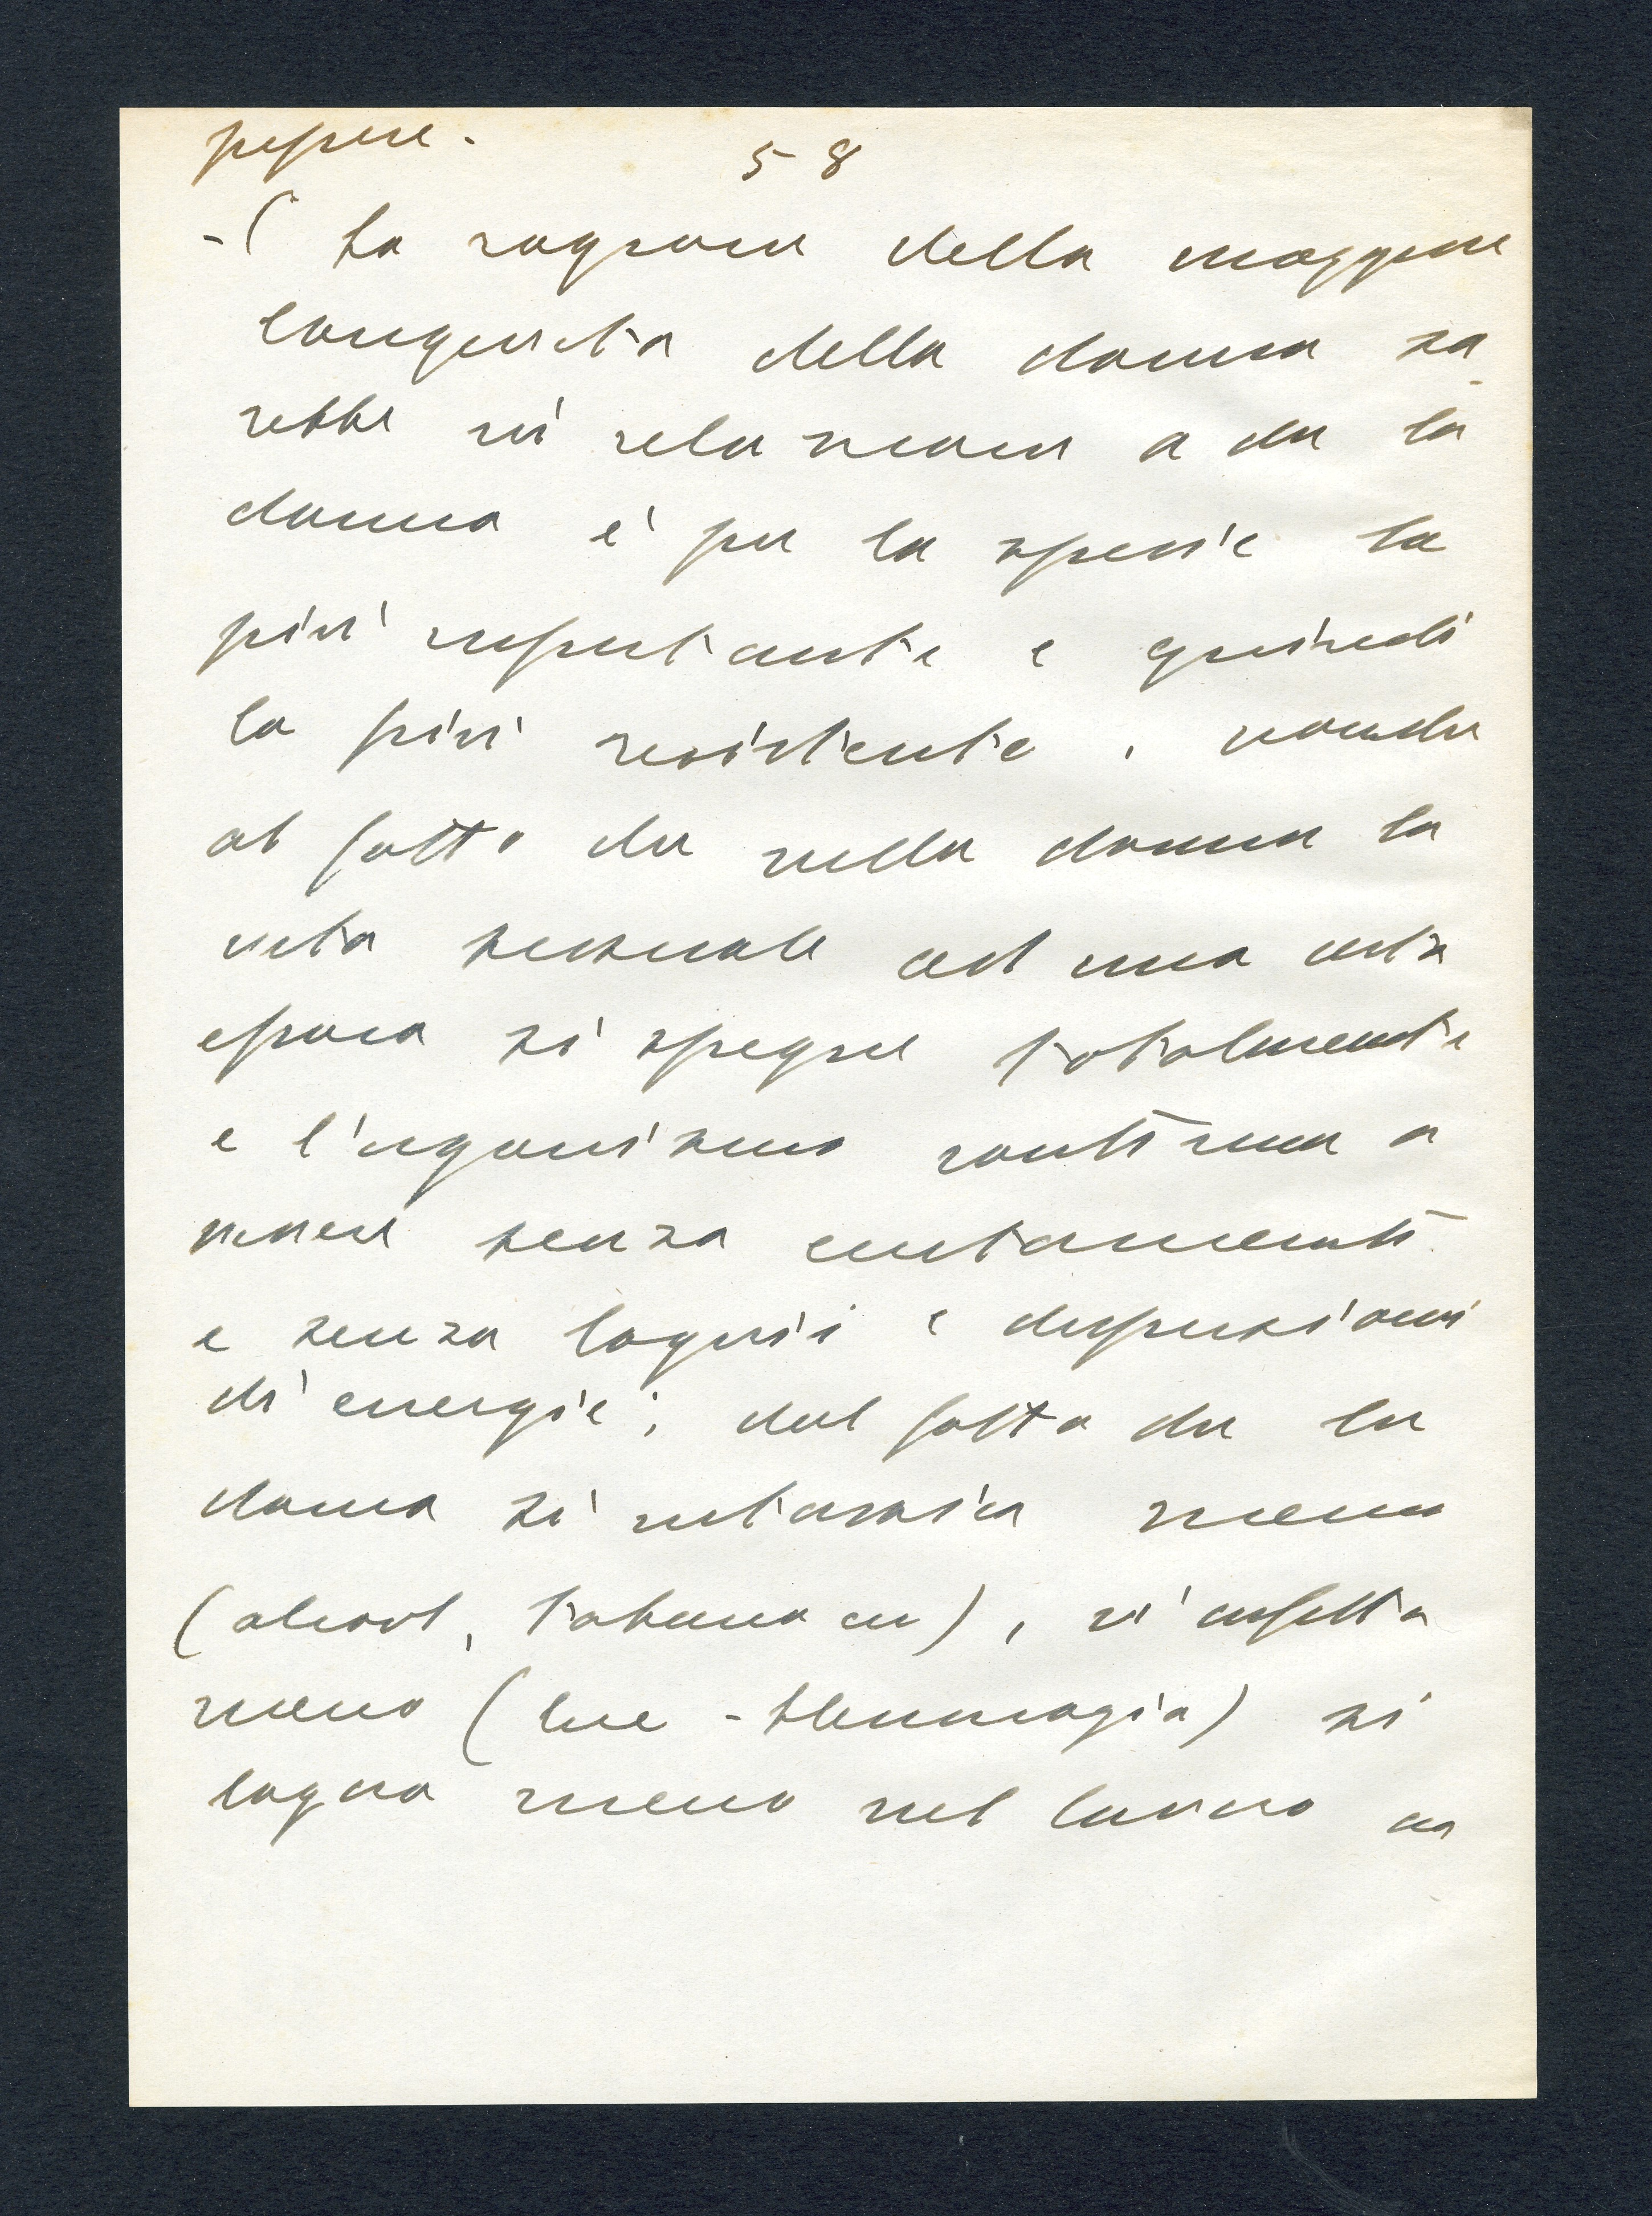 58
-( La ragione della maggiore
longevità della donna sa
rebbe in relazione a che la
donna è per la specie la
più importante e quindi
la più resistente,
al fatto che nella donna la
vita sessuale ad una certa
epoca si spegne totalmente
e l'organismo continua a
vivere senza eccitamenti
e senza logorii e dispersioni
di energie; dal fatto che la
donna si intossica meno
(alcool, tabacco ecc), si infetta
meno (lue - blenorragia) si
logora meno nel lavoro ecc